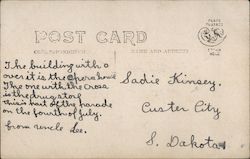 POST CARD
CORRESPONDENCE
NAME AND ADDRESS
PLACE
STAMP
HERE
The building with o
over it is the opera house
The one with the cross
is the drugstore
this is part of the parade
on the fourth of July.
from uncle Lee.
Sadie Kinsey.
Custer City
S. Dakota